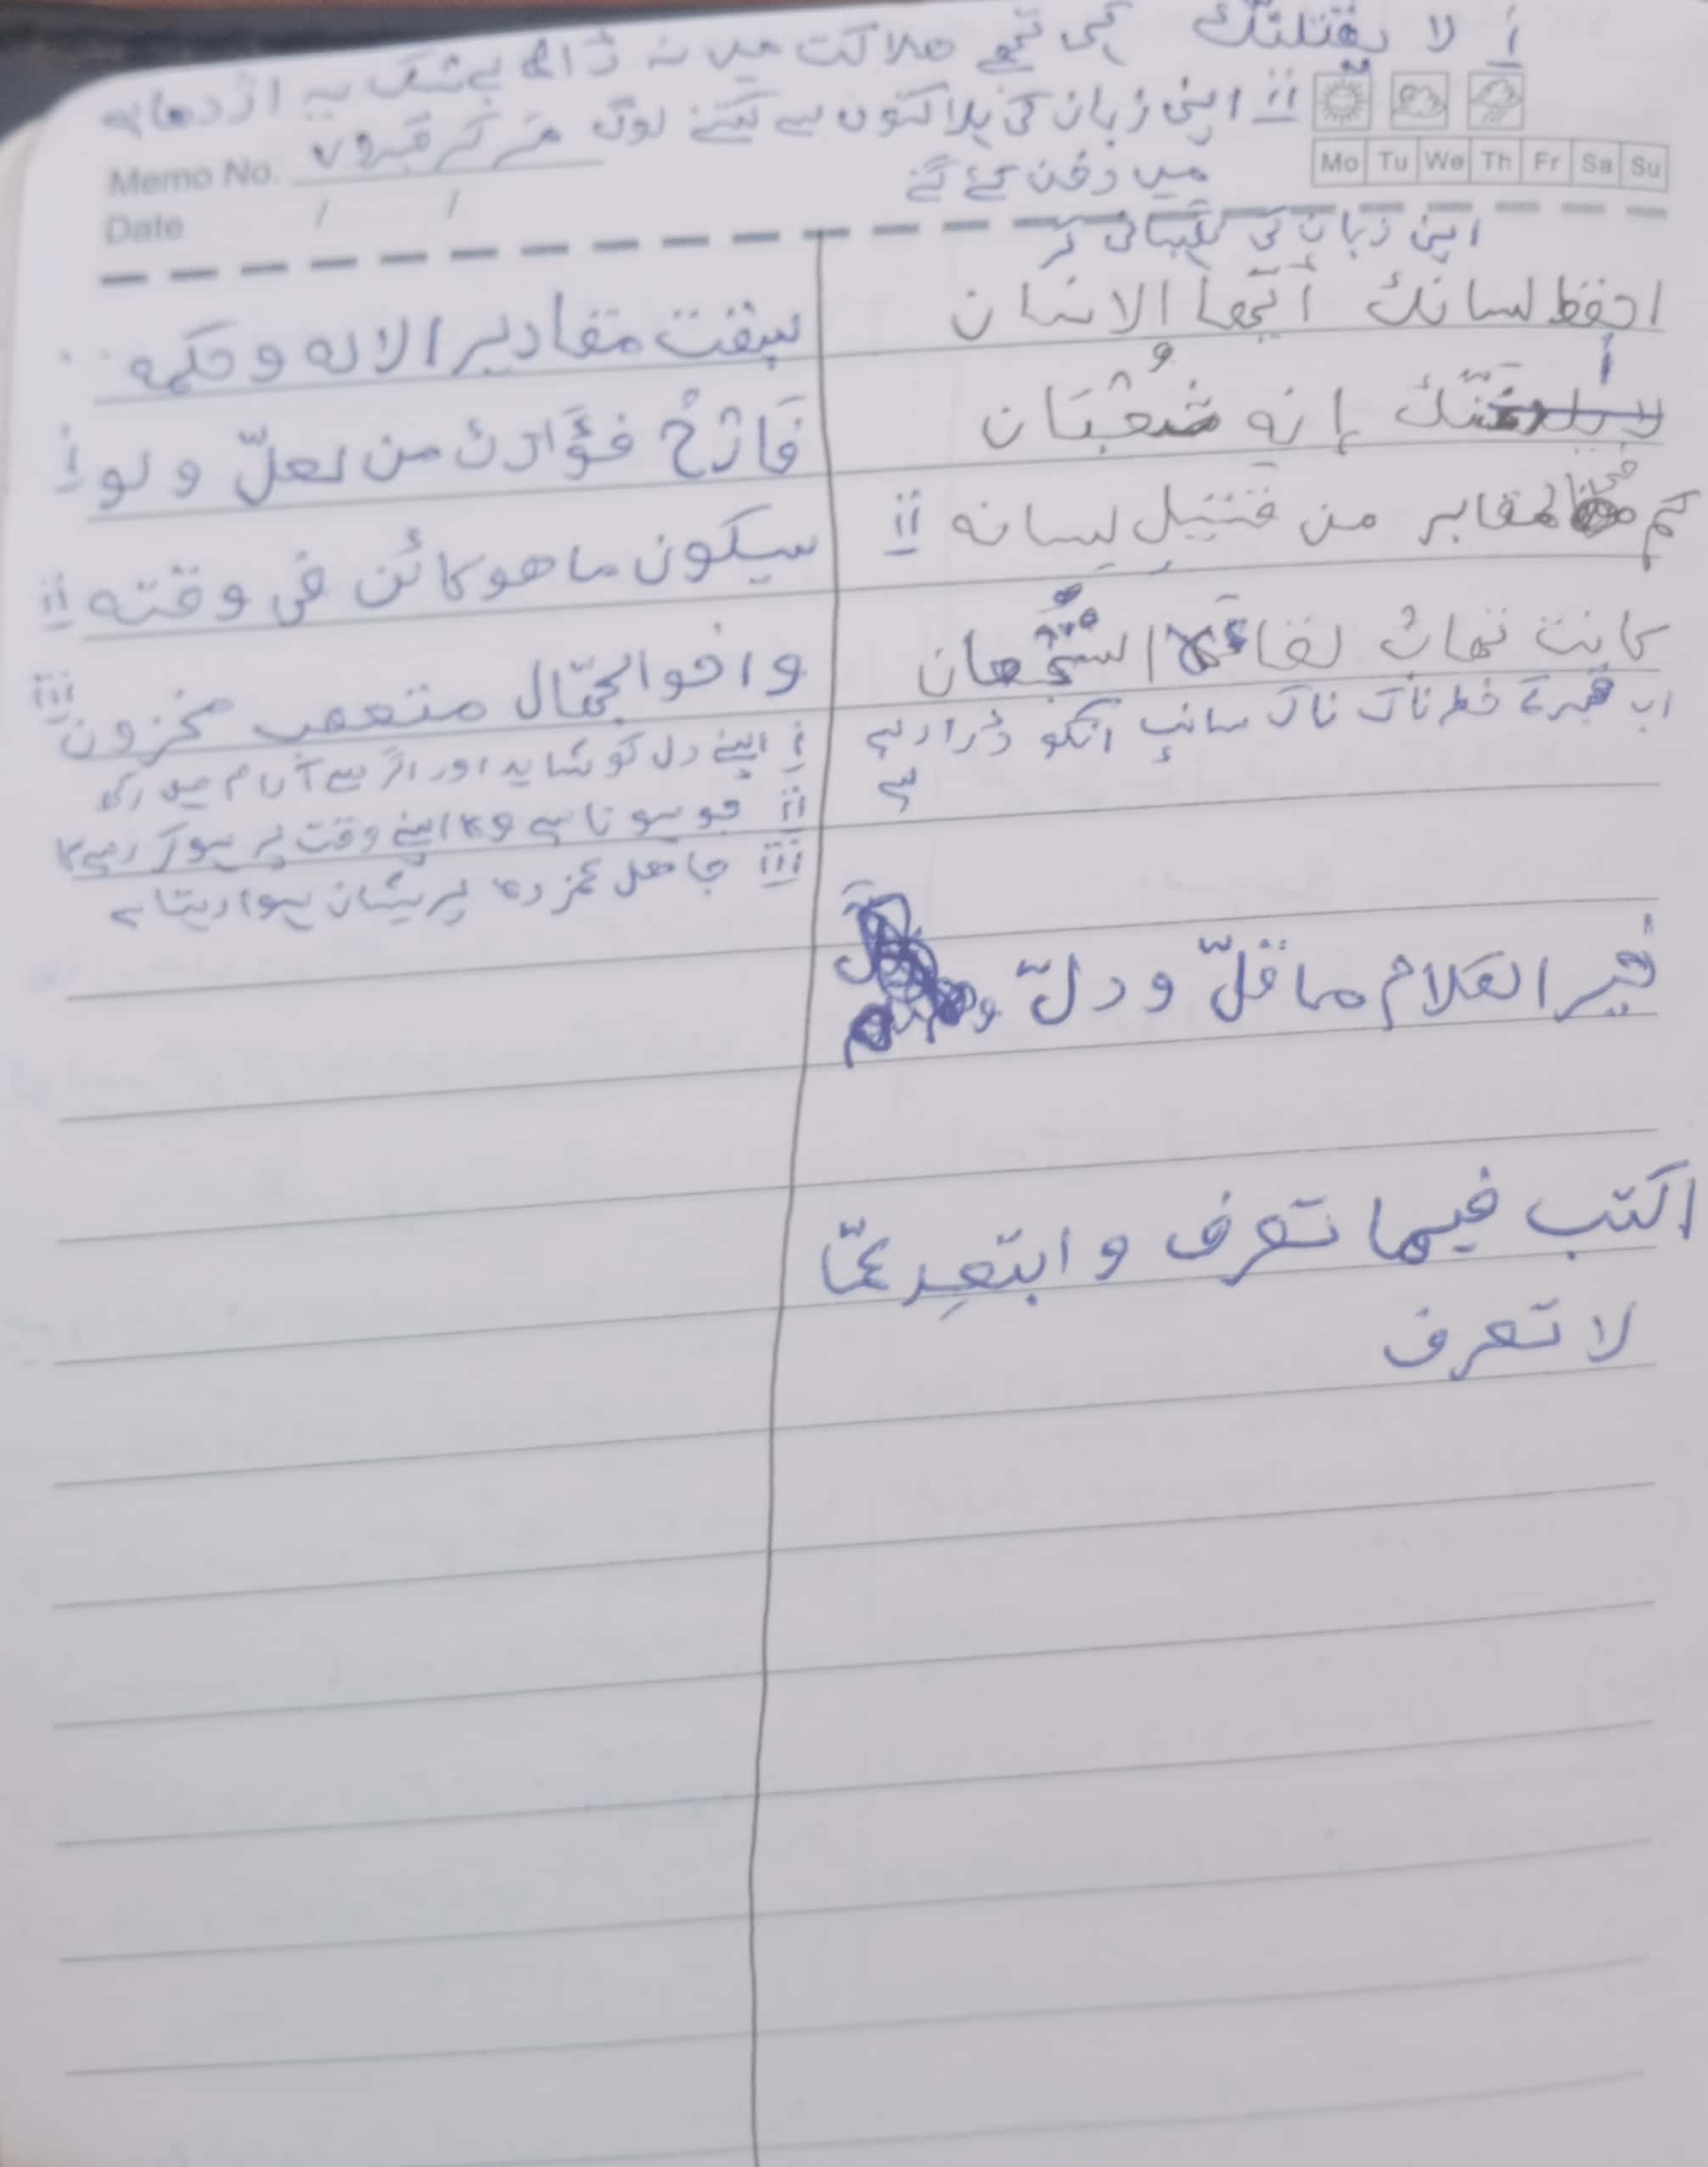 أ لا يقتلنّك کہی تجھے ھلاکت میں نہ ڈالے بے شک یہ اژدھا ہے
أأ اپنی زبان کی ہلاکتوں سے کتنے لوگ مر کر قبروں
میں دفن کئے گئے
Memo No.
Date / /
Mo Tu We Th Fr Sa Su
اپنی زبان کی نگہبانی کر
احفظ لسانك أيّها الانسان
إنه ثُعْبَان
كم في المقابر من قتيلِ لِسانه أأ
كانت تهابُ لقاءَه الشُّجعان
اب قبر کے خطرناک ناک سانپ انکو ڈرا رہے
ہے
خير الكلام ما قلّ و دلّ
اكتب فيما تعرف و ابتعِد عمّا
لا تعرف
سبقت مقادير الاله و حكمه
فَارِحْ فؤَادك من لعلّ و لو أ
سيكون ما هو كائن في وقته أأ
و اخو الجهّال متعب مخزون أأأ
أ اپنے دل کو شاید اور اگر سے آرام میں رکھ
أأ جو ہونا ہے وہ اپنے وقت پر ہو کر رہے گا
أأأ جاھل غمزدہ پریشان ہوا رہتا ہے